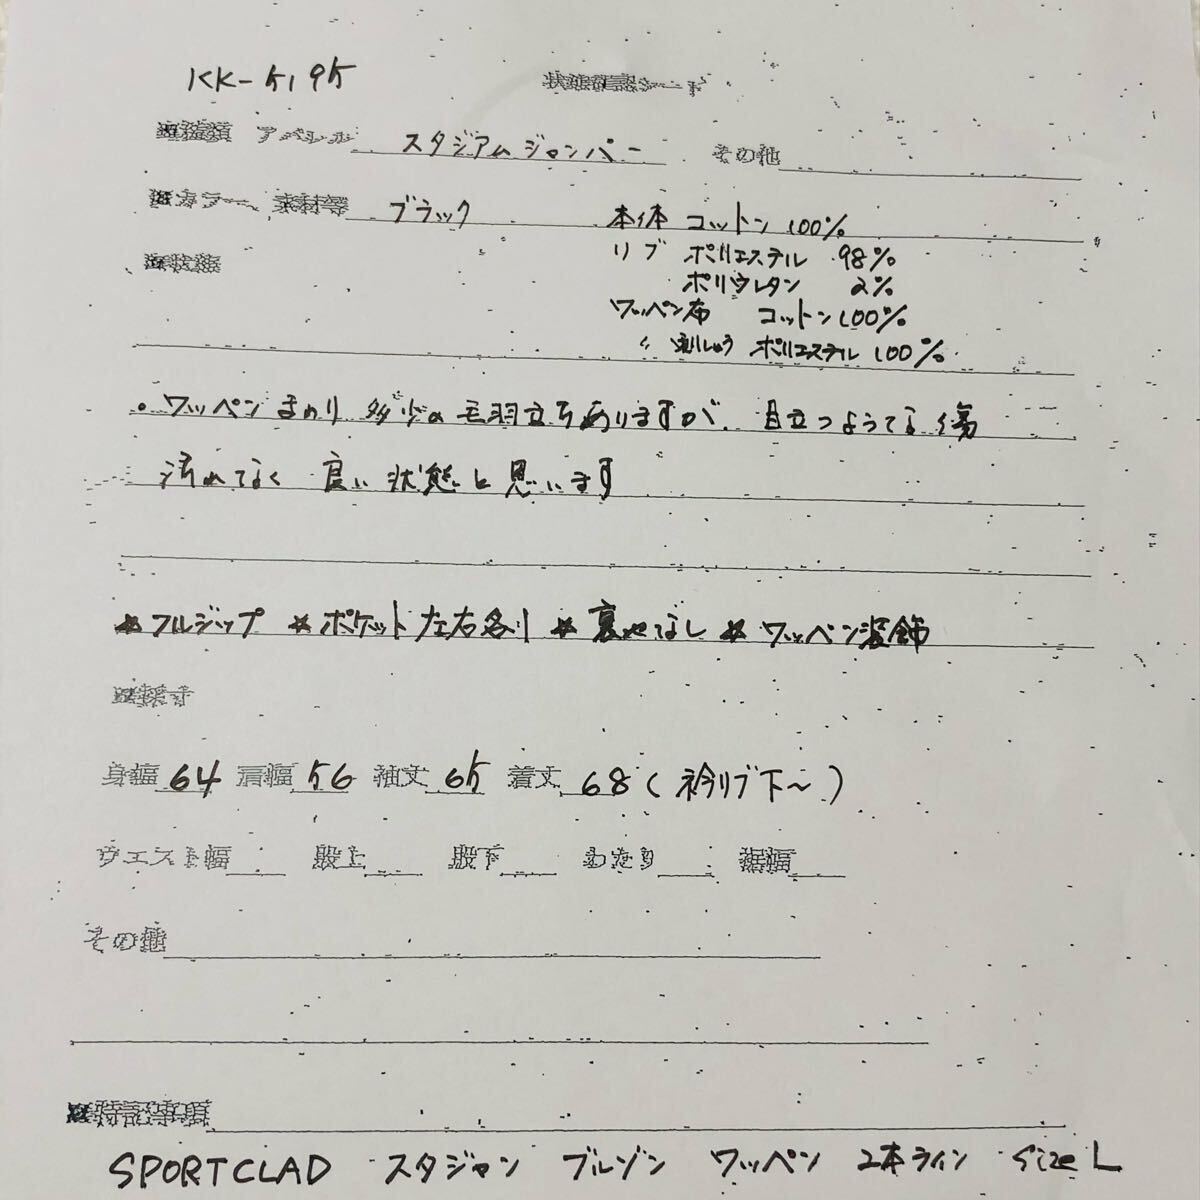 KK-5195
状態確認シート
※種類 アパレル スタジアムジャンパー その他
※カラー、素材等 ブラック 本体 コットン 100%
リブ ポリエステル 98%
※状態 ポリウレタン 2%
ワッペン布 コットン100%
〃 刺しゅう ポリエステル 100%
・ワッペンまわり 多少の毛羽立ちありますが、目立つようてな傷
汚れてなく 良い状態と思います
★フルジップ ★ポケット左右各1 ★裏地なし ★ワッペン装飾
※採寸
身幅 64 肩幅 56 袖丈 65 着丈 68(衿リブ下～)
ウエスト幅 股上 股下 わたり 裾幅
その他
※特記事項
SPORTCLAD スタジャン ブルゾン ワッペン 2本ライン Size L